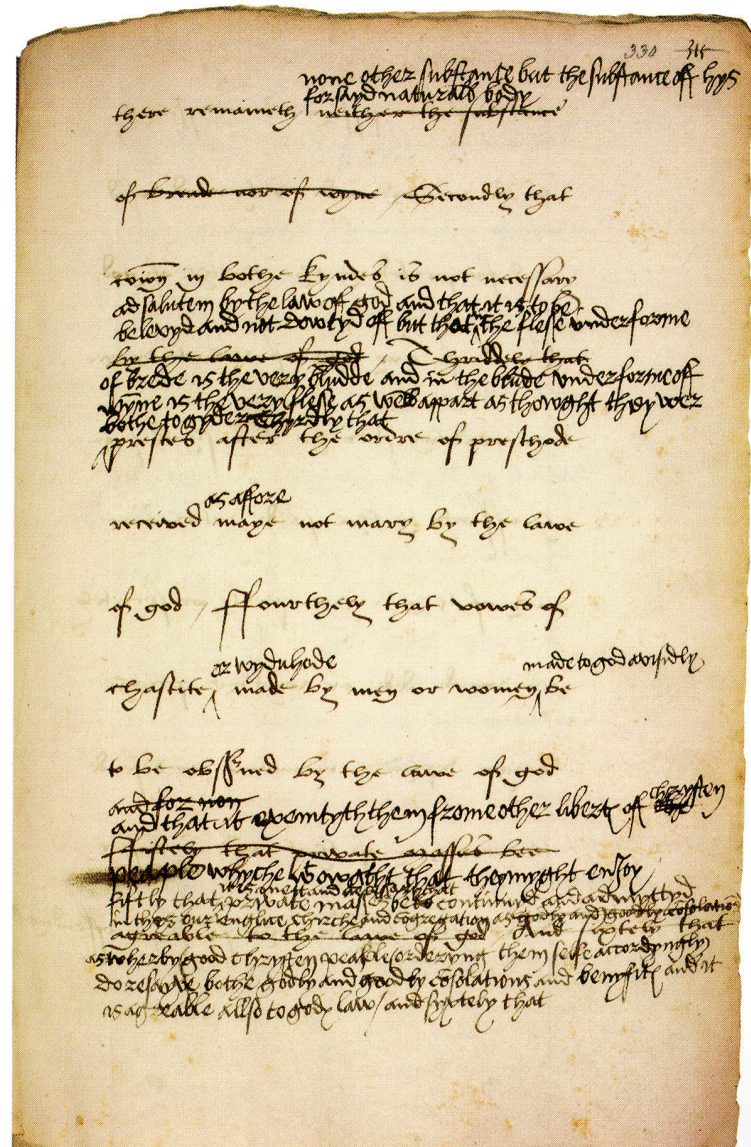 330
none other substance but the substance off hys
forsayd naturall body
there remaineth neither the substance
of breade nor of wyne / Secondly that
cōion in bothe kyndes is not necessary
ad salutem by the law off god and that it is to be
belevyd and not dowtyd off but that in the flese under forme
by the lawe of god / Thriddely that
of brede is the very bludde and in the blude under forme off
wyne is the very flese as well appart as thowght they wer
bothe togyder Thyrdly that
prestes after the ordre of presthode
as affore
received maye not mary by the lawe
of god / Ffourthely that vowes of
or wyduhode made to god avisidly
chastite made by men or women be
to be observed by the lawe of god
and for non
and that it exemtyth them frome other libertx of chrysten
Ffiftely that private masses bee
peaple whyche w owght that they myght enjoy
it is meet and necessary that
fiftly that private masses be continued and admyttyd
in thys our englice chirche and cogregation as godly and goodly cōsolatiō
agreable to the lawe of god And sixtely that
as wherby good chrysten peaple orderyng them selfe accordyngly
do resayve bothe godly and goodly cōsolations and benyfitx and it
is agreable allso to godx law / and syxtely that